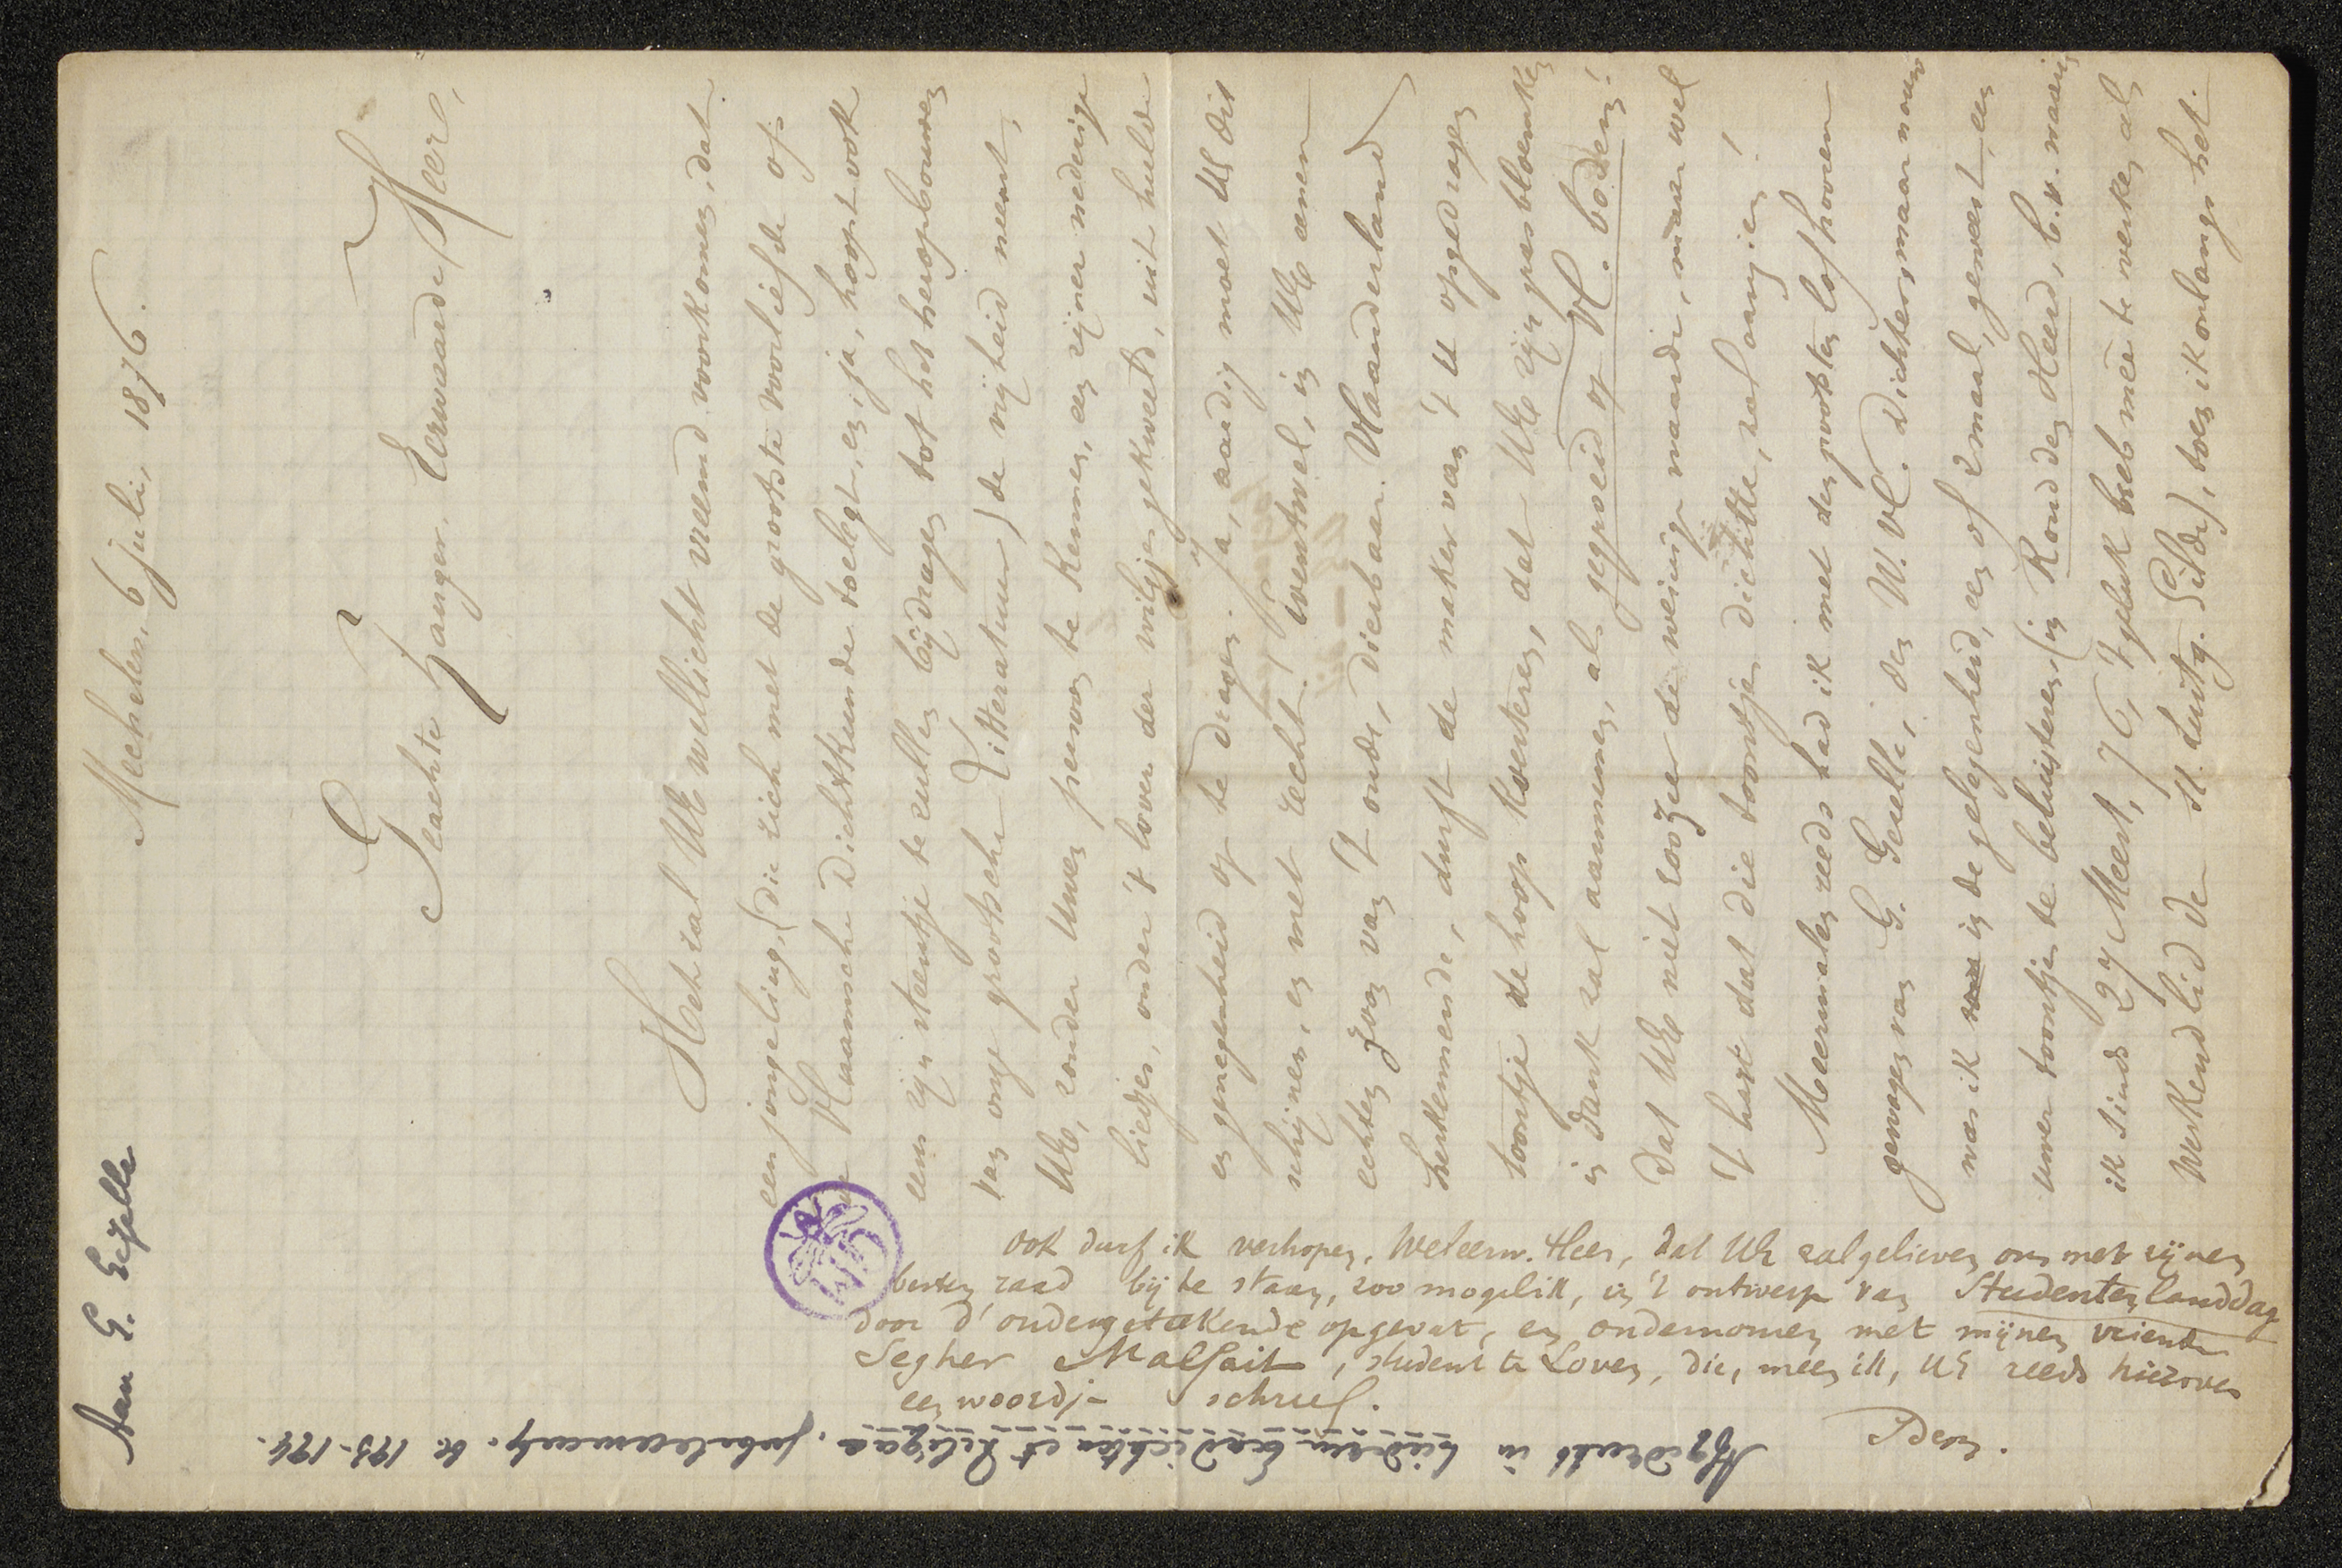 Aan G. Gezelle
Mechelen, 6 juli, 1876.
Geachte Zanger, Eerwaarde Heer,
Het zal UE wellicht vreemd voorkomen, dat
een jongeling, (die zich met de grootste voorliefde op
de Vlaamsche Dichtkunde toelegt, en ja, hoopt ook
eens zijn steentje te zullen bijdragen tot het heropbouwen
van onze grootsche Litteratuur) de vrijheid neemt,
UE, zonder Uwen persoon te kennen, een zijner nederige
liedjes, onder 't lover der wilgen gekweeld, uit hulde
en genegenheid op te dragen. Ja, aardig moet UE dit
schijnen, en met recht! Evenwel, in UE eenen
echten zoon van 't oude, dierbaar Vlaanderland
herkennende, durft de maker van 't U opgedragen
toontje de hoop koesteren, dat UE zijn persbloemken
in dank zal aanmmen, als gegroeid op Vl. bodem!
Dat UE niet zoozeer de weinige waarde, maar wel
't hart dat die toontjen dichtte, zal aanzien!
Meermalen reeds had ik met den grootsten lof hooren
gewagen van G. Gezelle, den W. Vl. Dichter, maar nauw
was ik in de gelegenheid, een of 2maal, geweest, een
uwer toontjen te beluisteren (in Rond den Heerd, b.v. waarin
ik sinds 27 Meert, 76, 't geluk heb mêe te werken als
werkend lid der St. Luitg. Gilde), toen ik onlangs het
ook durf ik verhopen, Weleerw. Heer, dat UE zal gelieven ons met zijnen
besten raad bij te staan, zoo mogelik, in 't ontwerp van Studentenlanddag
door d' ondergeteekende opgevat, en ondernomen met mijnen vriend
Segher Malfait, student te Loven, die, meen ik, UE reeds hierover
een woordje schreef.
Dezn.
Afgedrukt in Liederen Eerdichten et Reliqua. Jubileumuitg. bl. 193-194.